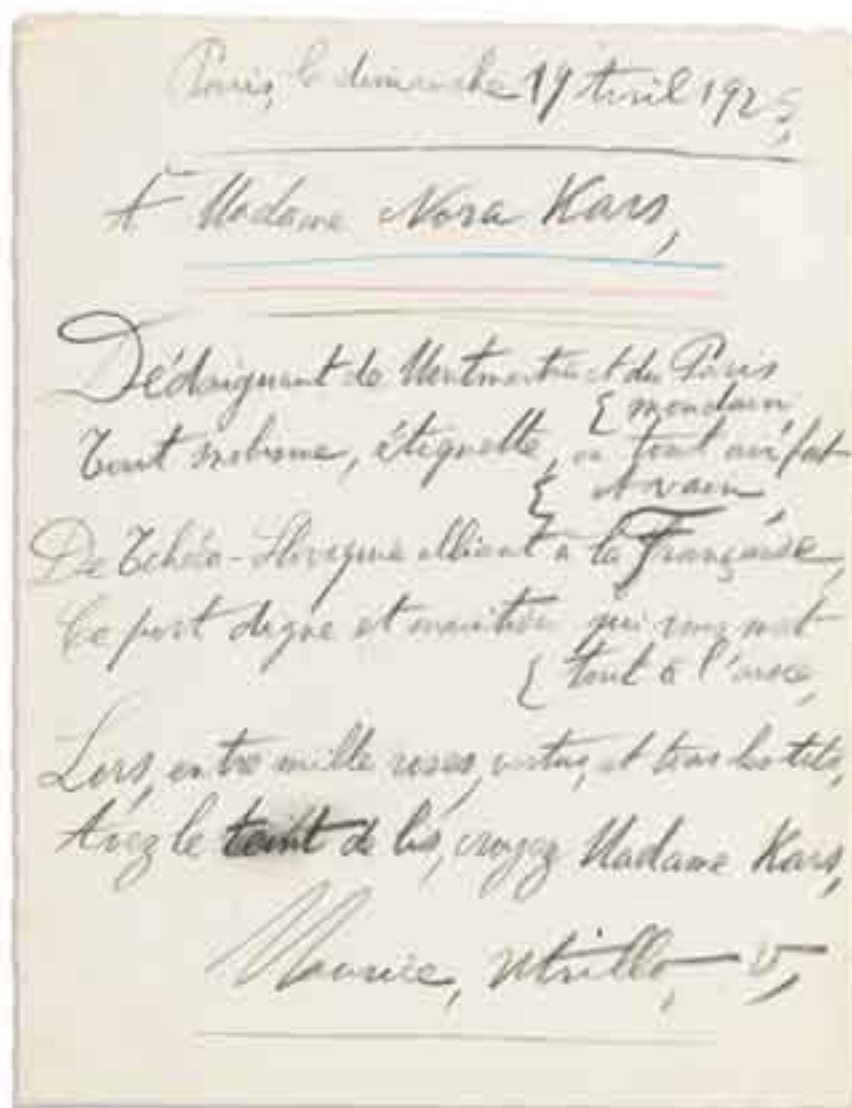 Paris, le dimanche 19 Avril 1925,
A Madame Nora Kars,
Dédaignant de Montmartre et du Paris
{ mondain,
Tout snobisme, étiquette, ou tout air fat
{ et vain,
De Tchéco-Slovaque alliant à la Française,
Ce port digne et maintien qui vous met
{ tout à l'aise,
Lors, entre mille roses, vertus, et tous
Avez le teint de lis, croyez Madame Kars,
Maurice, Utrillo, V,